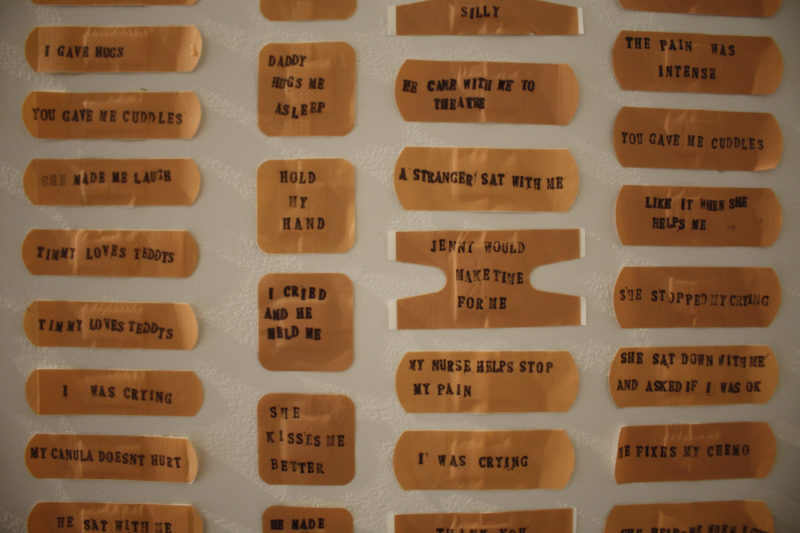 I GAVE HUGS
YOU GAVE ME CUDDLES
SHE MADE ME LAUGH
TIMMY LOVES TEDDYS
TIMMY LOVES TEDDYS
I WAS CRYING
MY CANULA DOESNT HURT
HE SAT WITH ME
DADDY
HUGS ME
ASLEEP
HOLD
MY
HAND
I CRIED
AND HE
HELD ME
SHE
KISSES ME
BETTER
HE MADE
SILLY
HE CAME WITH ME TO
THEATRE
A STRANGER SAT WITH ME
JENNY WOULD
MAKE TIME
FOR ME
MY NURSE HELPS STOP
MY PAIN
I WAS CRYING
THANK YOU
THE PAIN WAS
INTENSE
YOU GAVE ME CUDDLES
LIKE IT WHEN SHE
HELPS ME
SHE STOPPED MY CRYING
SHE SAT DOWN WITH ME
AND ASKED IF I WAS OK
HE FIXES MY CHEMO
SHE HELD ME WHEN I